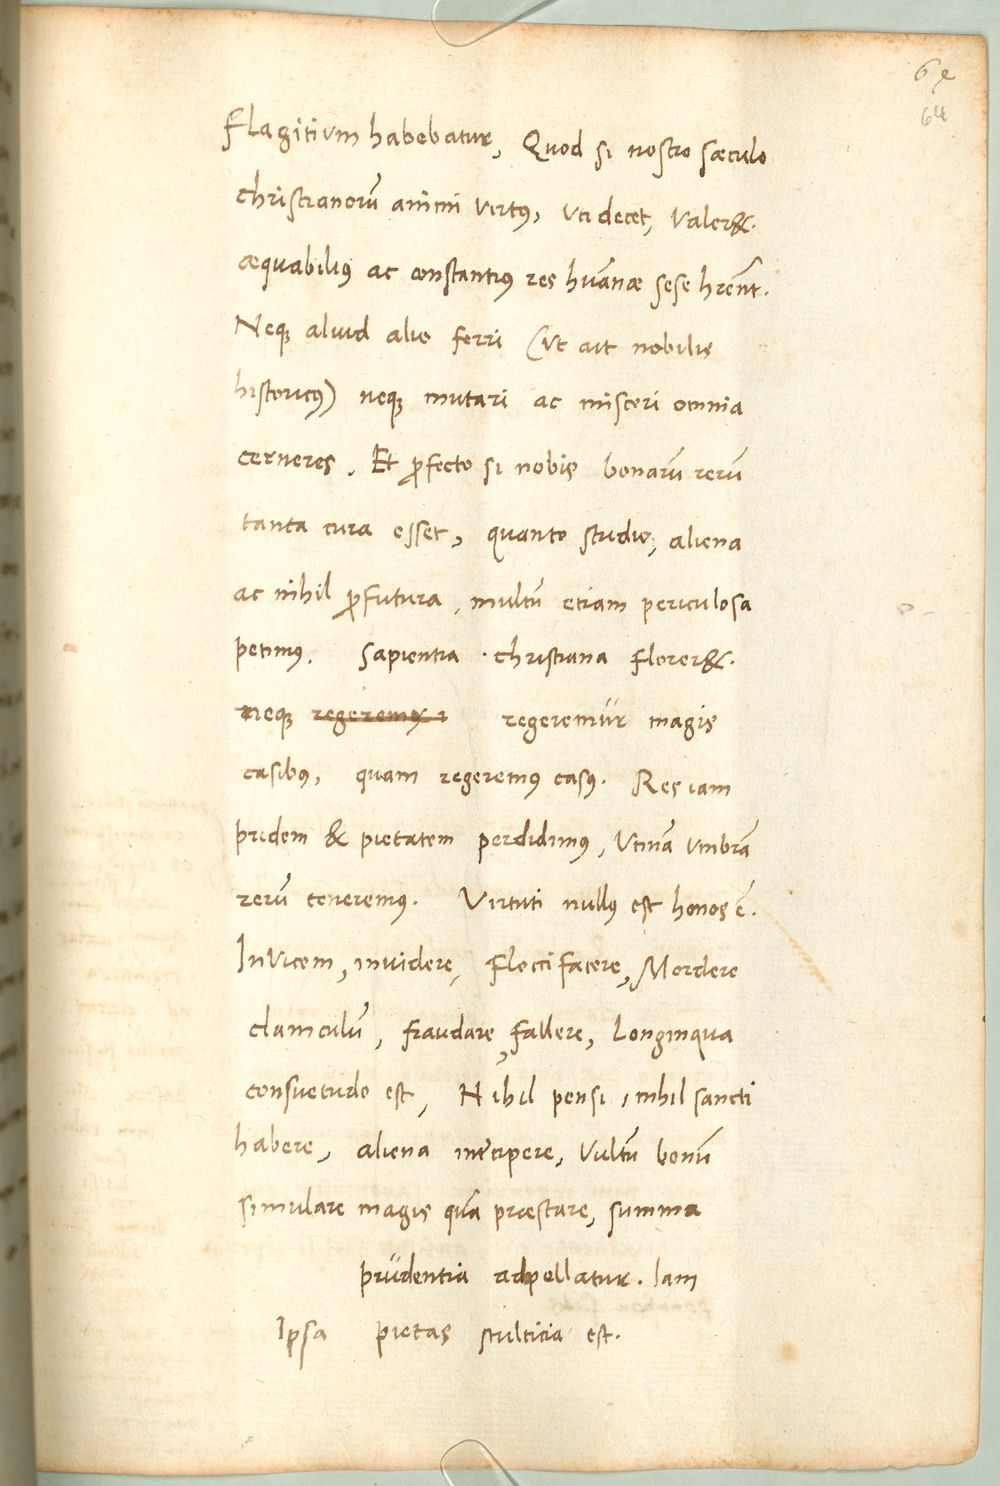 64
64
Flagitium habebatur, Quod si nostro sæculo
christianorū animi virtus, uti decet, valer&.
æquabilius ac constantius res huānæ sese hrēnt.
Neqꝫ aliud alio ferri (ut ait nobilis
historicus) neqꝫ mutari ac misceri omnia
cerneres. Et ꝓfecto si nobis bonarū rerū
tanta cura esset, quanto studio, aliena
ac nihil ꝓfutura, multū etiam periculosa
petimus. Sapientia christiana florer&.
neqꝫ regeremur regeremur magis
casibus, quam regeremus casus. Res iam
pridem & pietatem perdidimus, Utinā umbrā
rerū teneremus. Virtuti nullus est honos ē.
Invicem, invidere, Flocci facere, Mordere
clamculū, fraudare, fallere, Longinqua
consuetudo est, Nihil pensi, nihil sancti
habere, aliena intercipere, Vultū bonū
simulare magis quā præstare, summa
prudentia adpellatur. Iam
Ipsa pietas stulticia est.